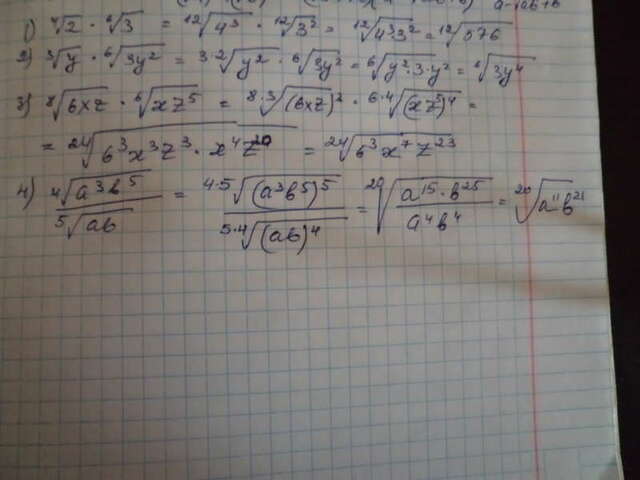 1) ⁴√2 · ⁶√3 = ¹²√4³ · ¹²√3² = ¹²√4³3² = ¹²√576
2) ³√y · ⁶√3y² = ³·²√y² · ⁶√3y² = ⁶√y²·3·y² = ⁶√3y⁴
3) ⁸√6xz · ⁶√xz⁵ = ⁸·³√(6xz)² · ⁶·⁴√(xz⁵)⁴ =
= ²⁴√6³x³z³ · x⁴z²⁰ = ²⁴√6³x⁷z²³
4) ⁴√a³b⁵ / ⁵√ab = ⁴·⁵√(a³b⁵)⁵ / ⁵·⁴√(ab)⁴ = ²⁰√a¹⁵·b²⁵ / a⁴b⁴ = ²⁰√a¹¹b²¹